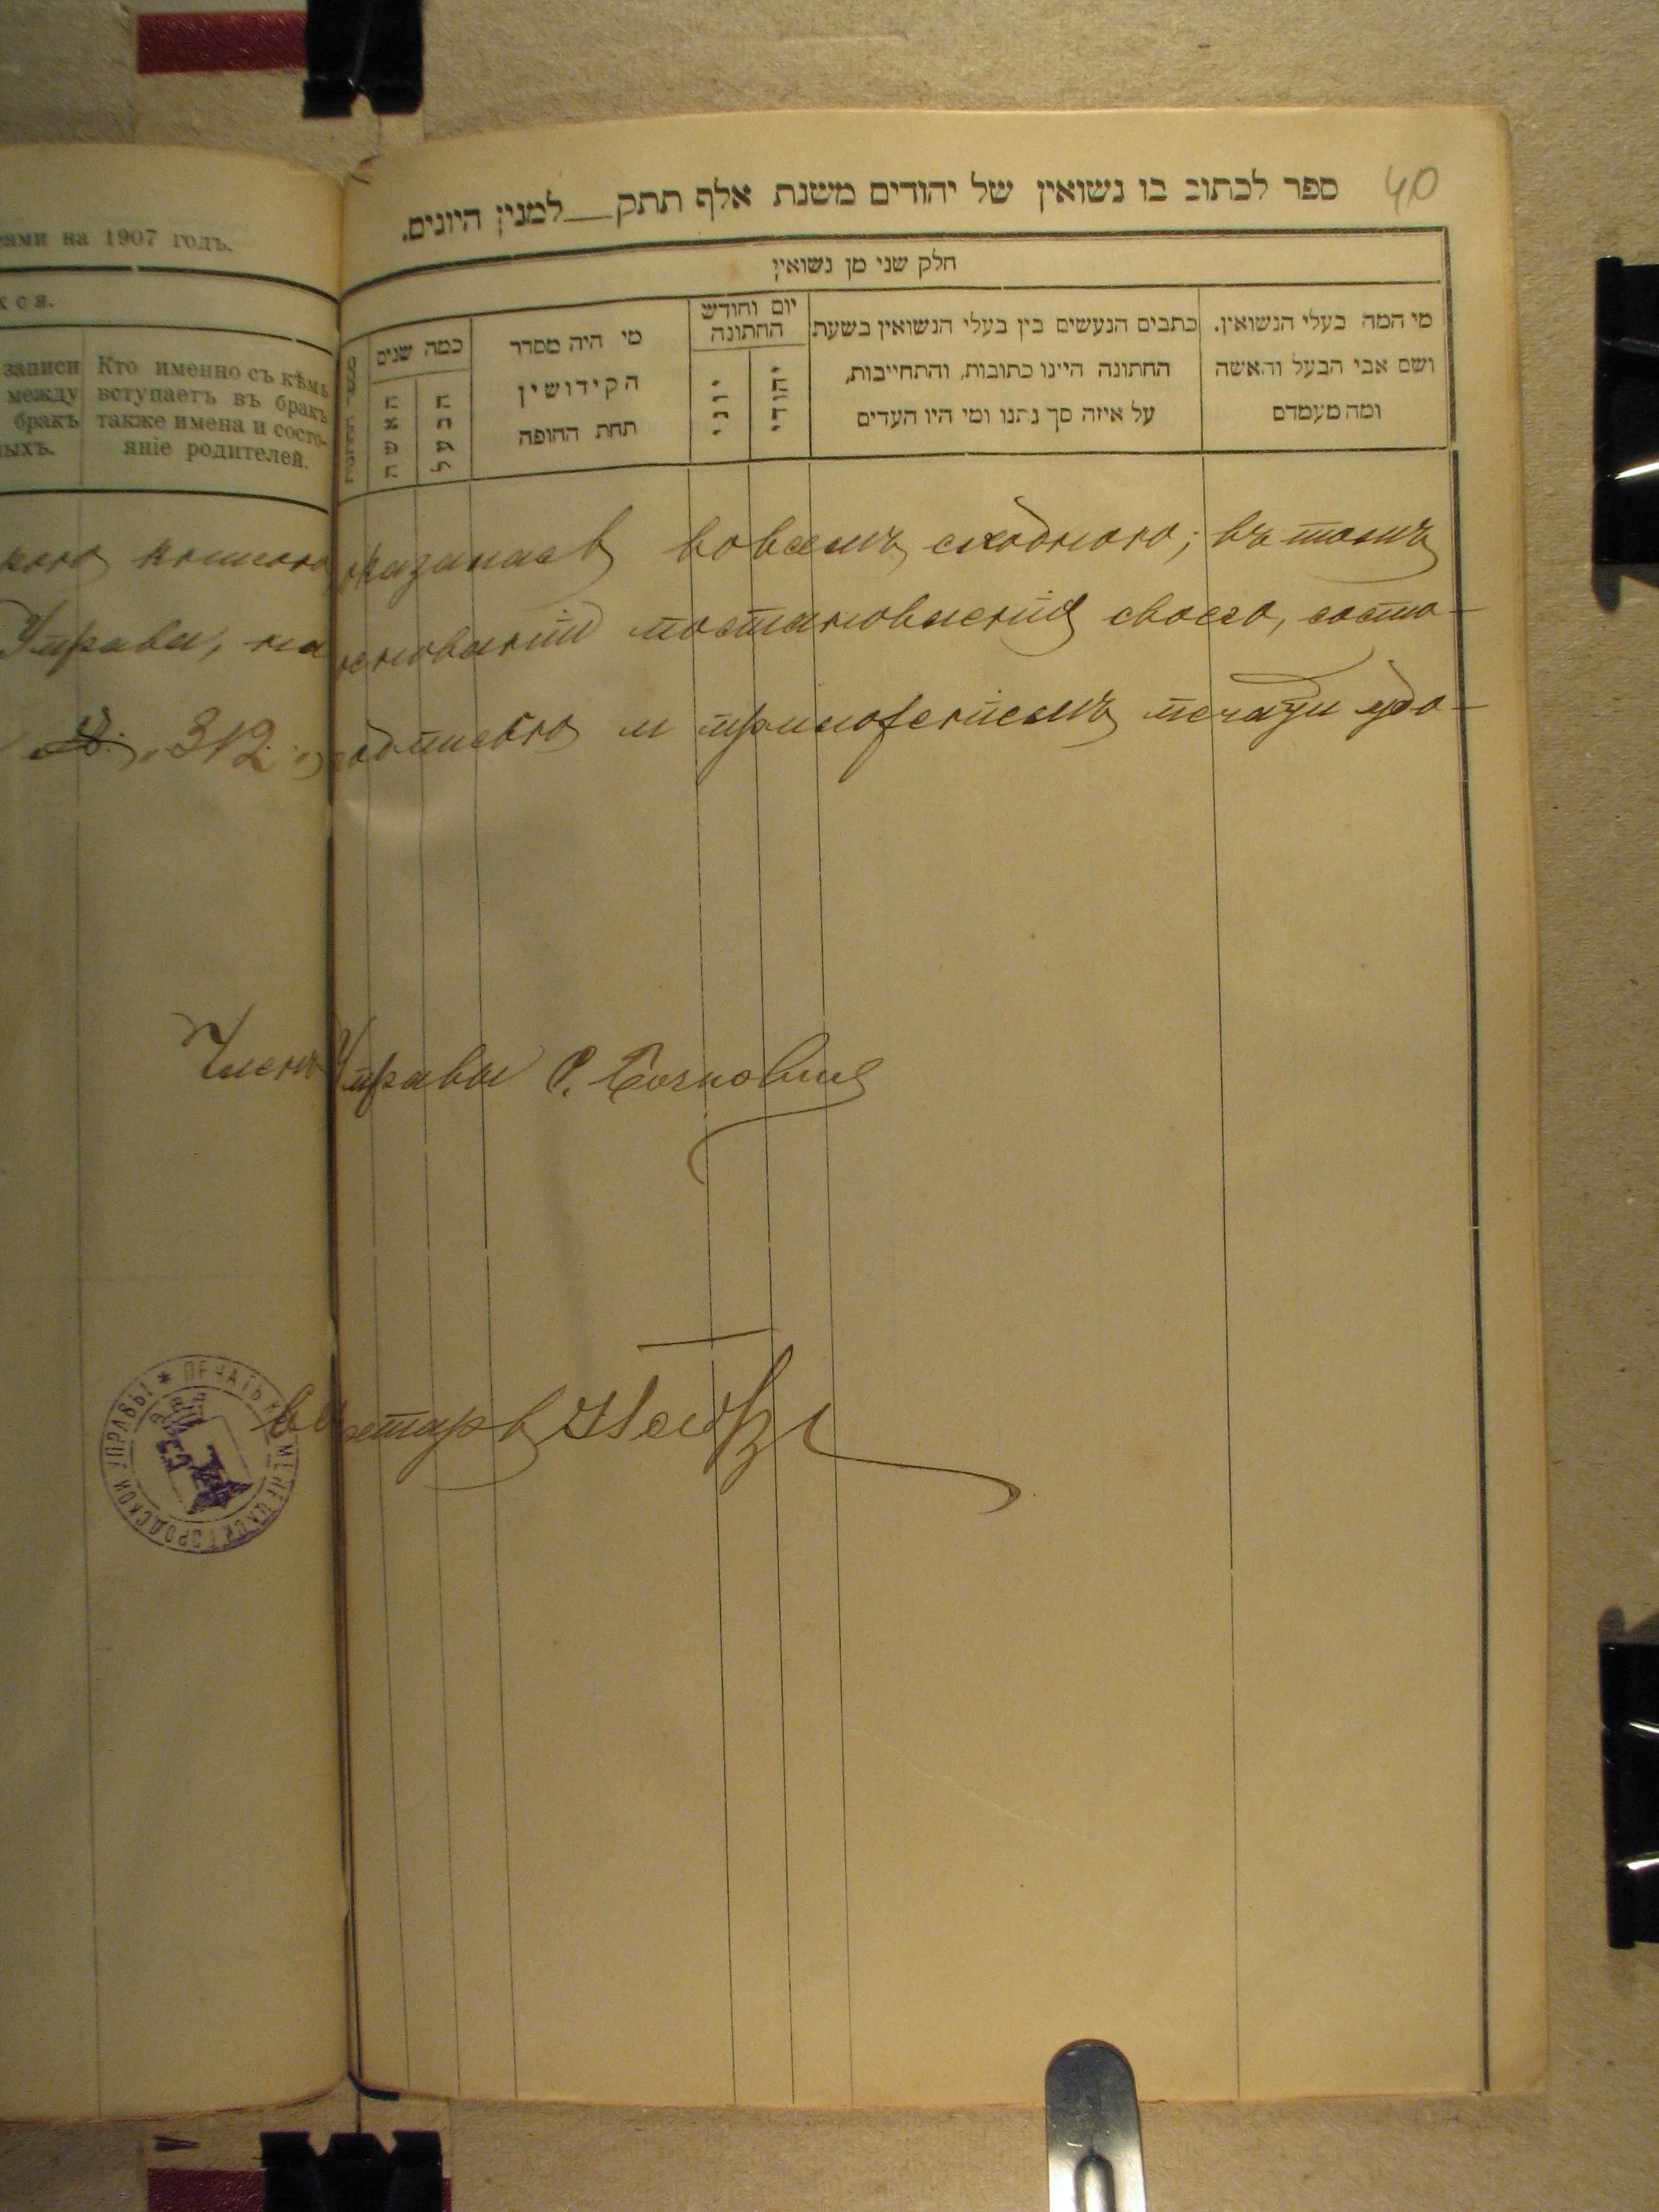 40
ספר לכתוב בו נשואין של יהודים משנת אלף תתק__למנין היונים.
חלק שני מן נשואין
מי המה בעלי הנשואין.
ושם אבי הבעל והאשה
ומה מעמדם
כתבים הנעשים בין בעלי הנשואין בשעת
החתונה היינו כתובות, והתחייבות,
על איזה סך נתנו ומי היו העדים
יום וחודש
החתונה
יהודי
יוני
מי היה מסדר
הקידושין
תחת החופה
כמה שנים
הבעל
האשה
ями на 1907 годъ.
хся.
записи
между
бракъ
ныхъ.
Кто именно съ кѣмъ
вступаетъ въ бракъ
также имена и состо-
яніе родителей.
оказалась во всемъ сходною; въ томъ
Управы, на основаніи постановленія своего, состо-
312 подписью и приложеніемъ печати удо-
Членъ Управы
Секретарь
ПЕЧАТЬ КАМЕНЕЦКОЙ ГОРОДСКОЙ УПРАВЫ